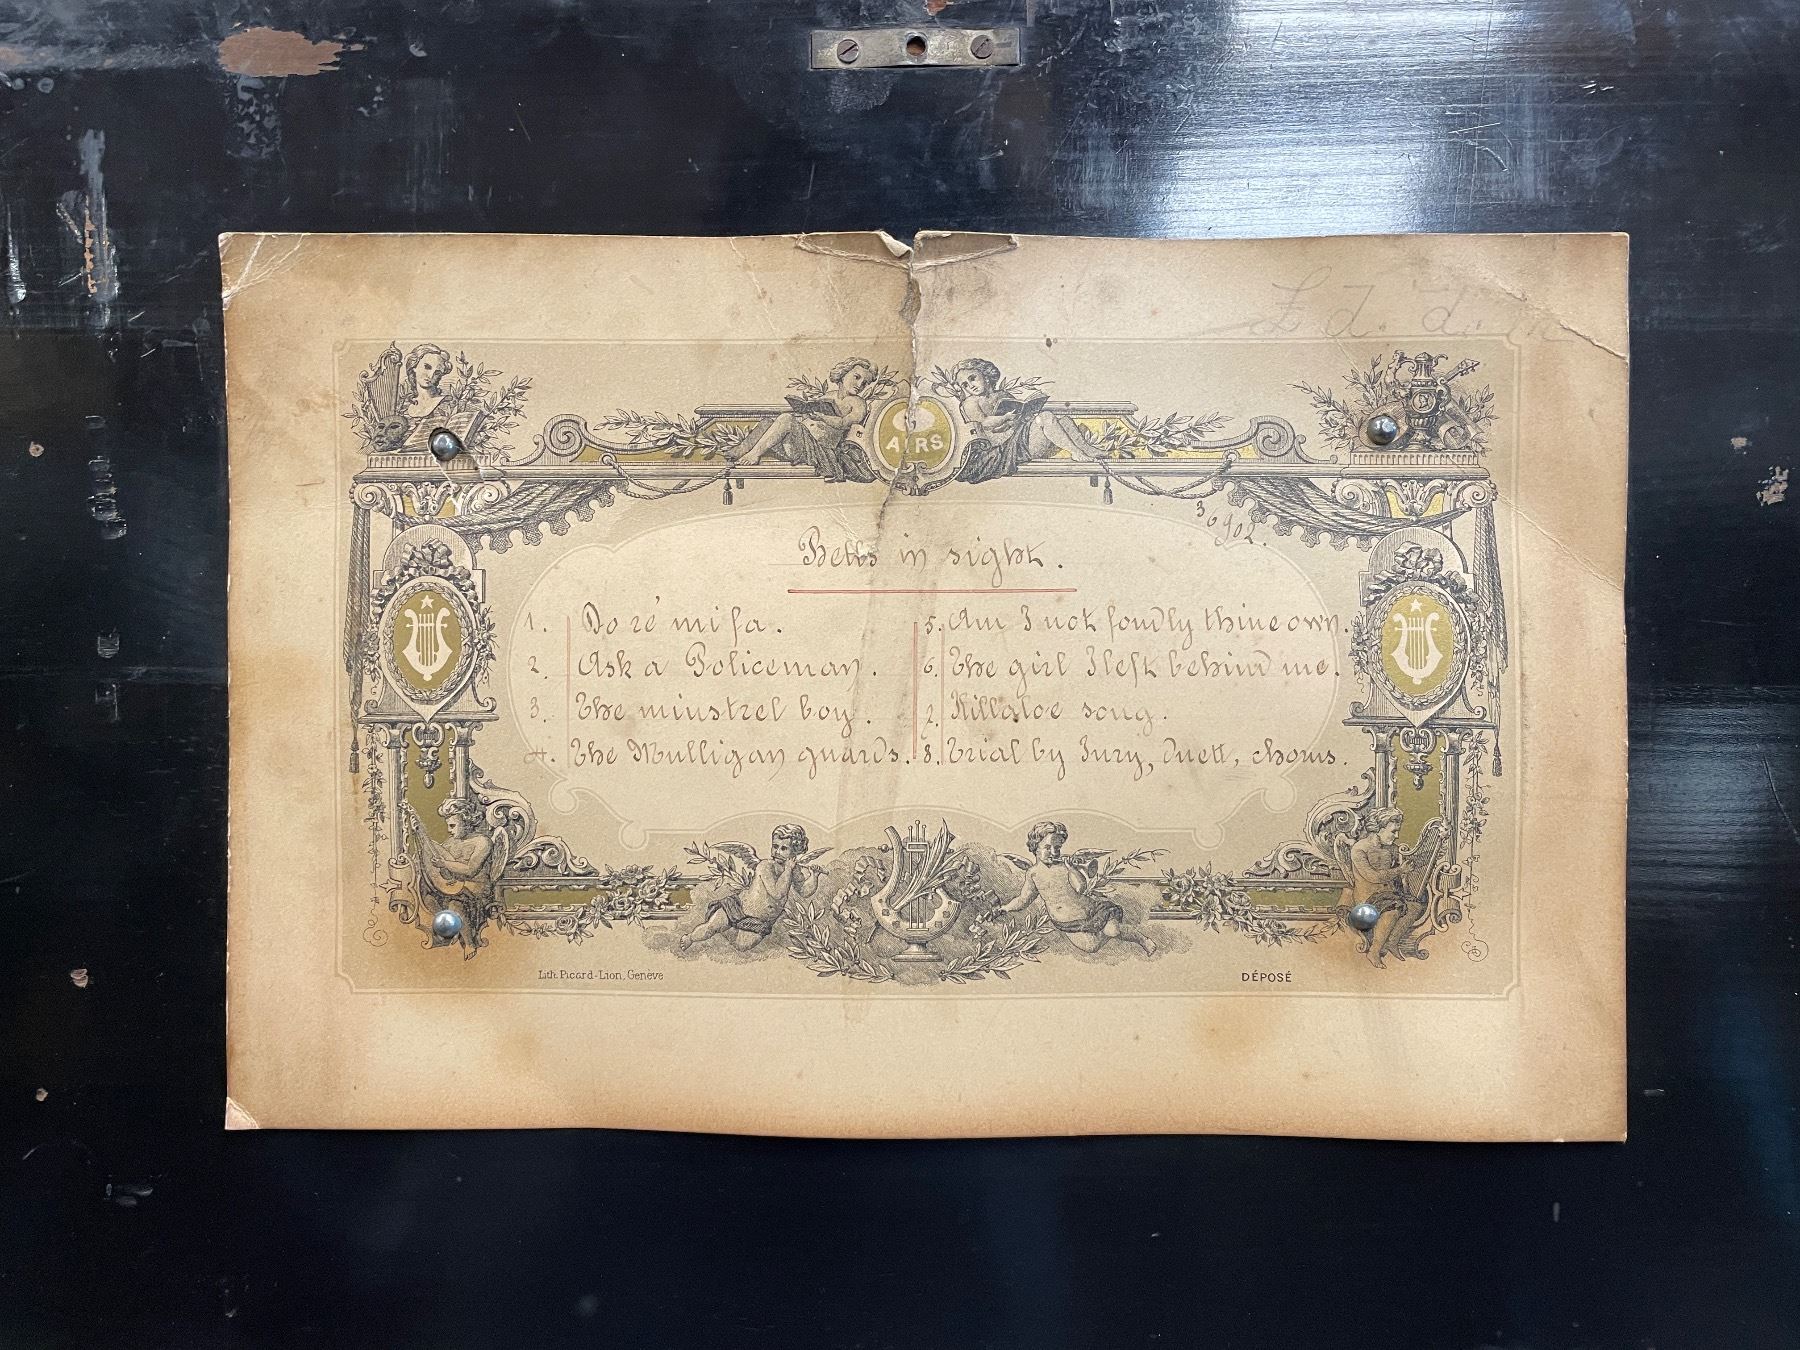 AIRS
30902.
Bells in sight.
1. Do ré mi fa.
2. Ask a Policeman.
3. The minstrel boy.
4. The Mulligan guards.
5. Am I not fondly thine own.
6. The girl I left behind me.
7. Killaloe song.
8. Trial by Jury, duett, chorus.
Lith. Picard-Lion, Genève
DÉPOSÉ